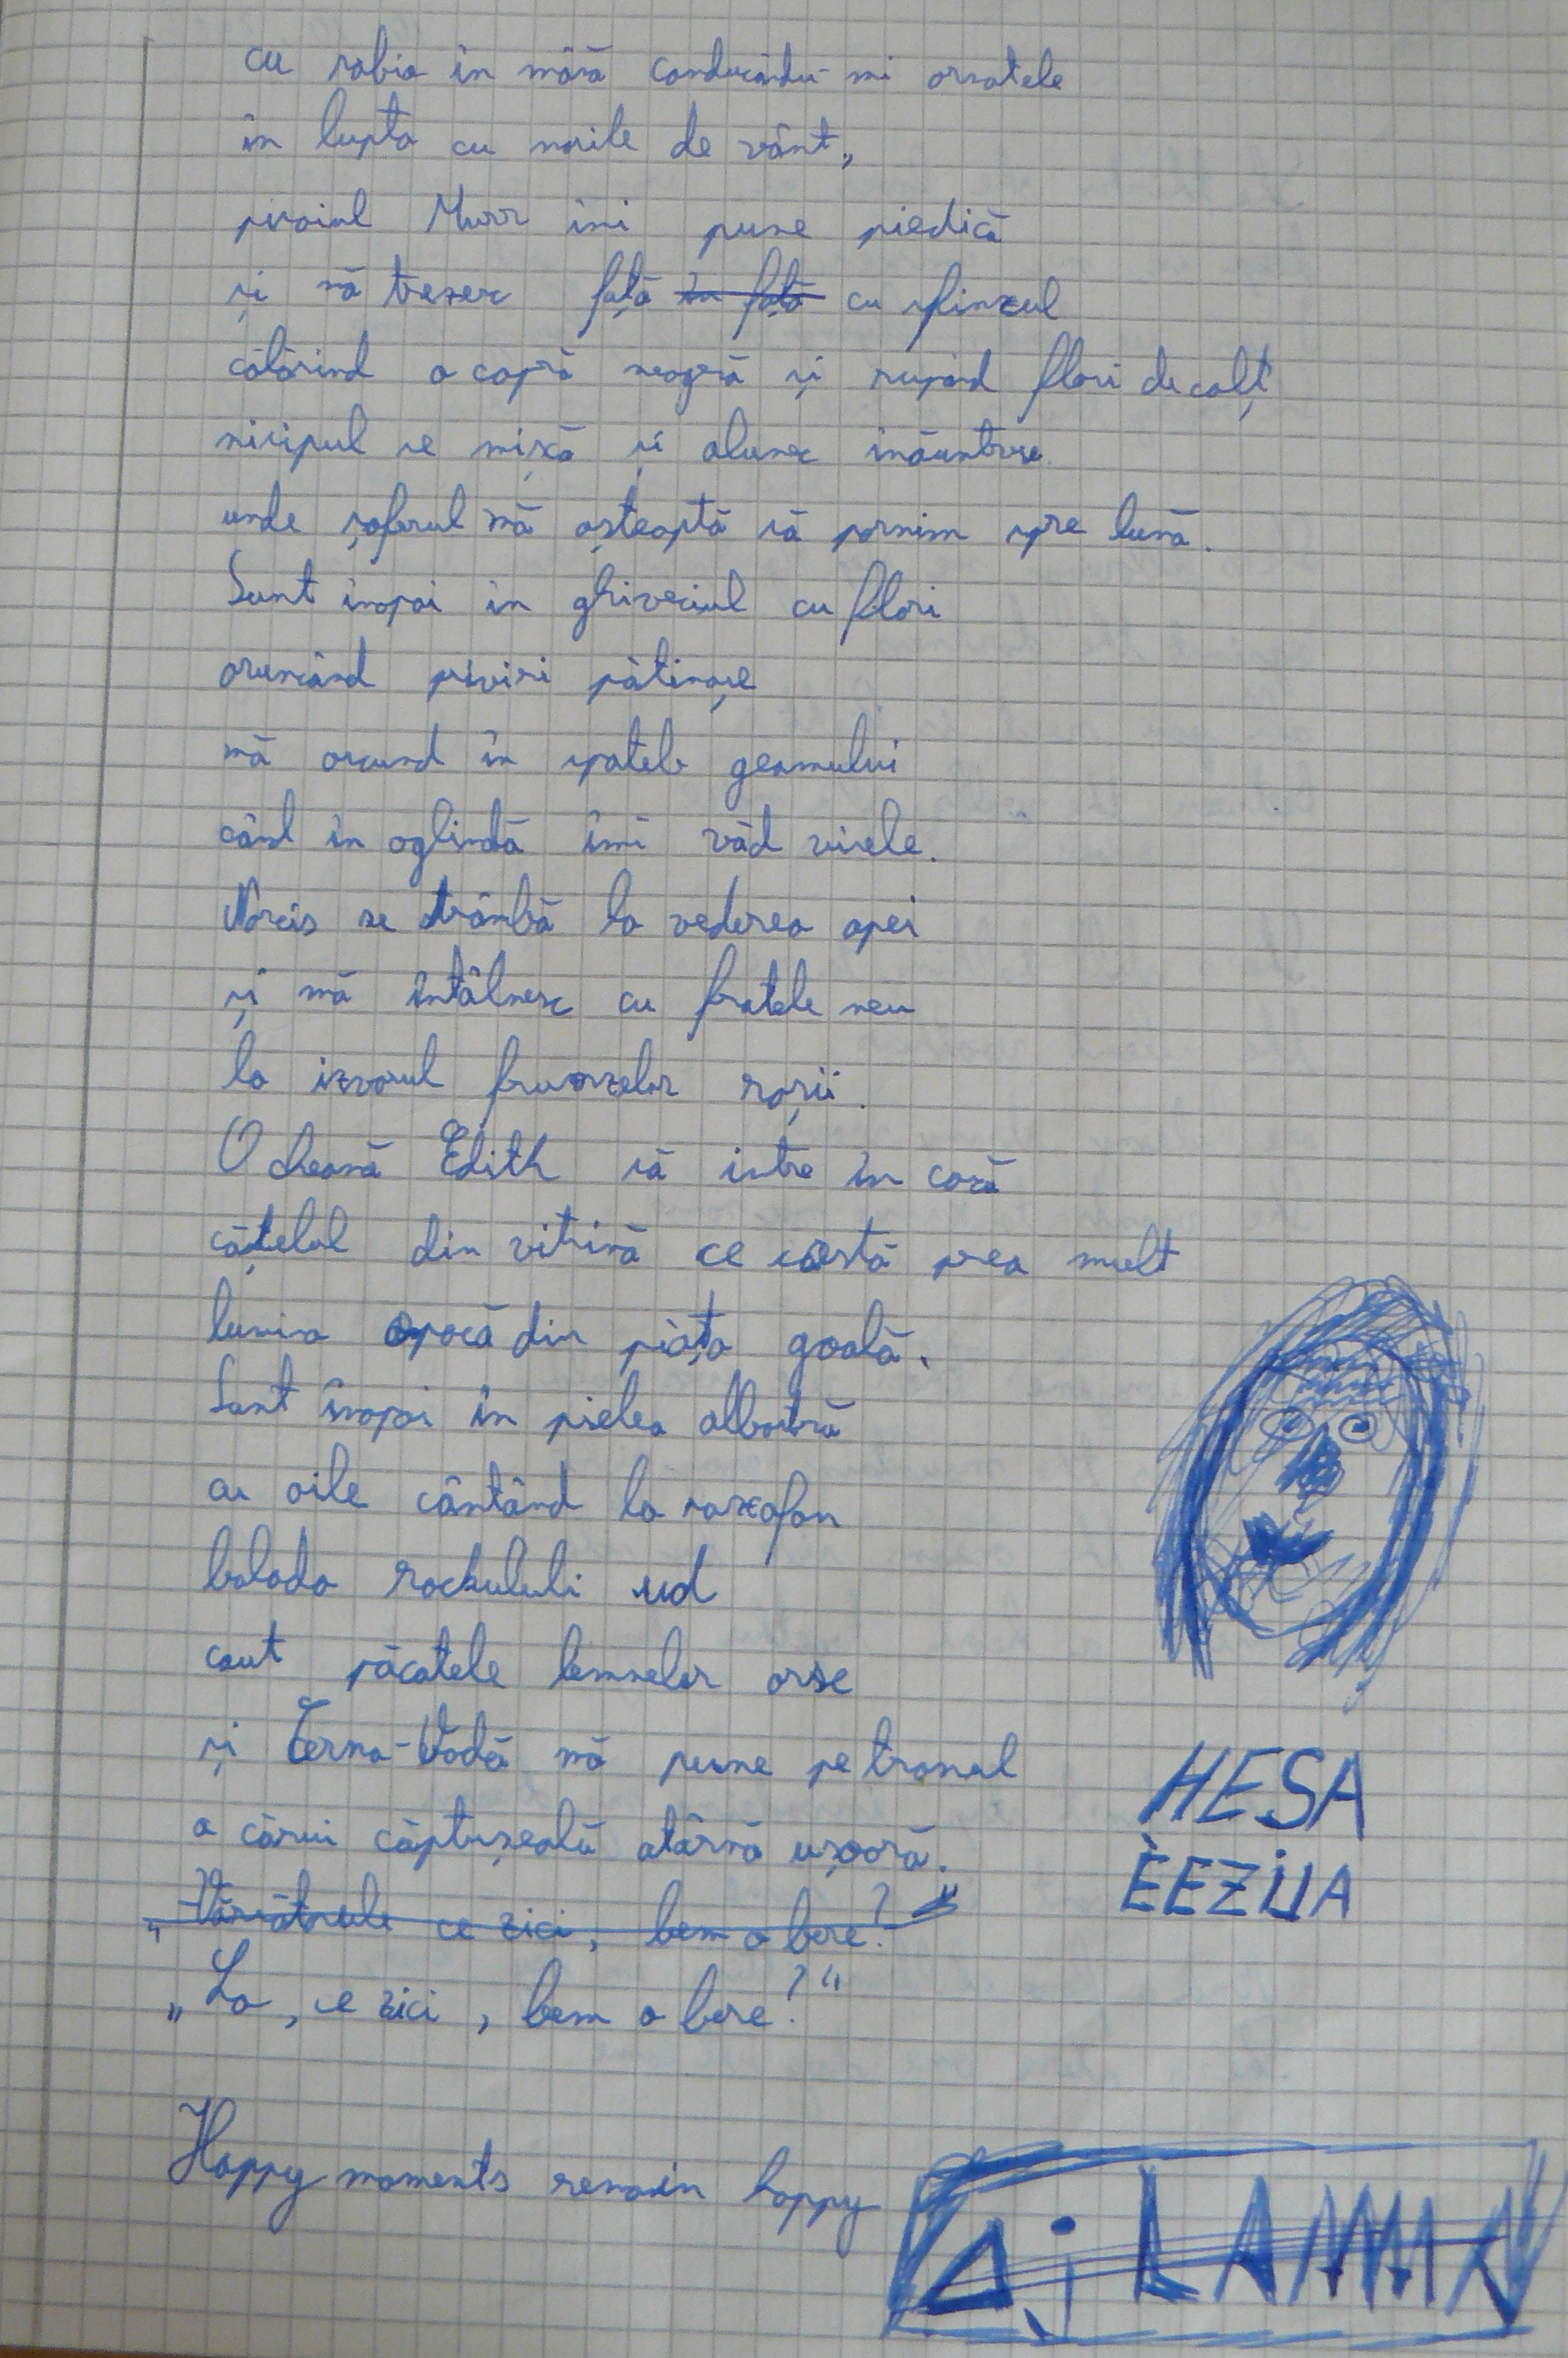 cu sabia în mână conducându-mi armatele
în lupta cu morile de vânt,
pisoiul Murr îmi pune piedică
și mă trezesc față în față cu sfinxul
călărind o capră neagră și rupând flori de colț
nisipul se mișcă și alunec înăuntru
unde șoferul mă așteaptă să pornim spre lună.
Sunt înapoi în ghiveciul cu flori
aruncând priviri pătimașe
mă ascund în spatele geamului
când în oglindă îmi văd visele.
Narcis se strâmbă la vederea apei
și mă întâlnesc cu fratele meu
la izvorul frunzelor roșii.
O cheamă Edith să intre în casă
cățelul din vitrină ce costă prea mult
lumina opacă din piața goală.
Sunt înapoi în pielea albastră
cu oile cântând la saxofon
balada rockului ud
caut păcatele lemnelor arse
și Cerna-Vodă mă pune pe tronul
a cărui căptușeală atârnă ușoară.
ce zici, bem o bere?"
„La, ce zici, bem o bere?"
HESA
ÈEZIJA
Happy moments remain happy